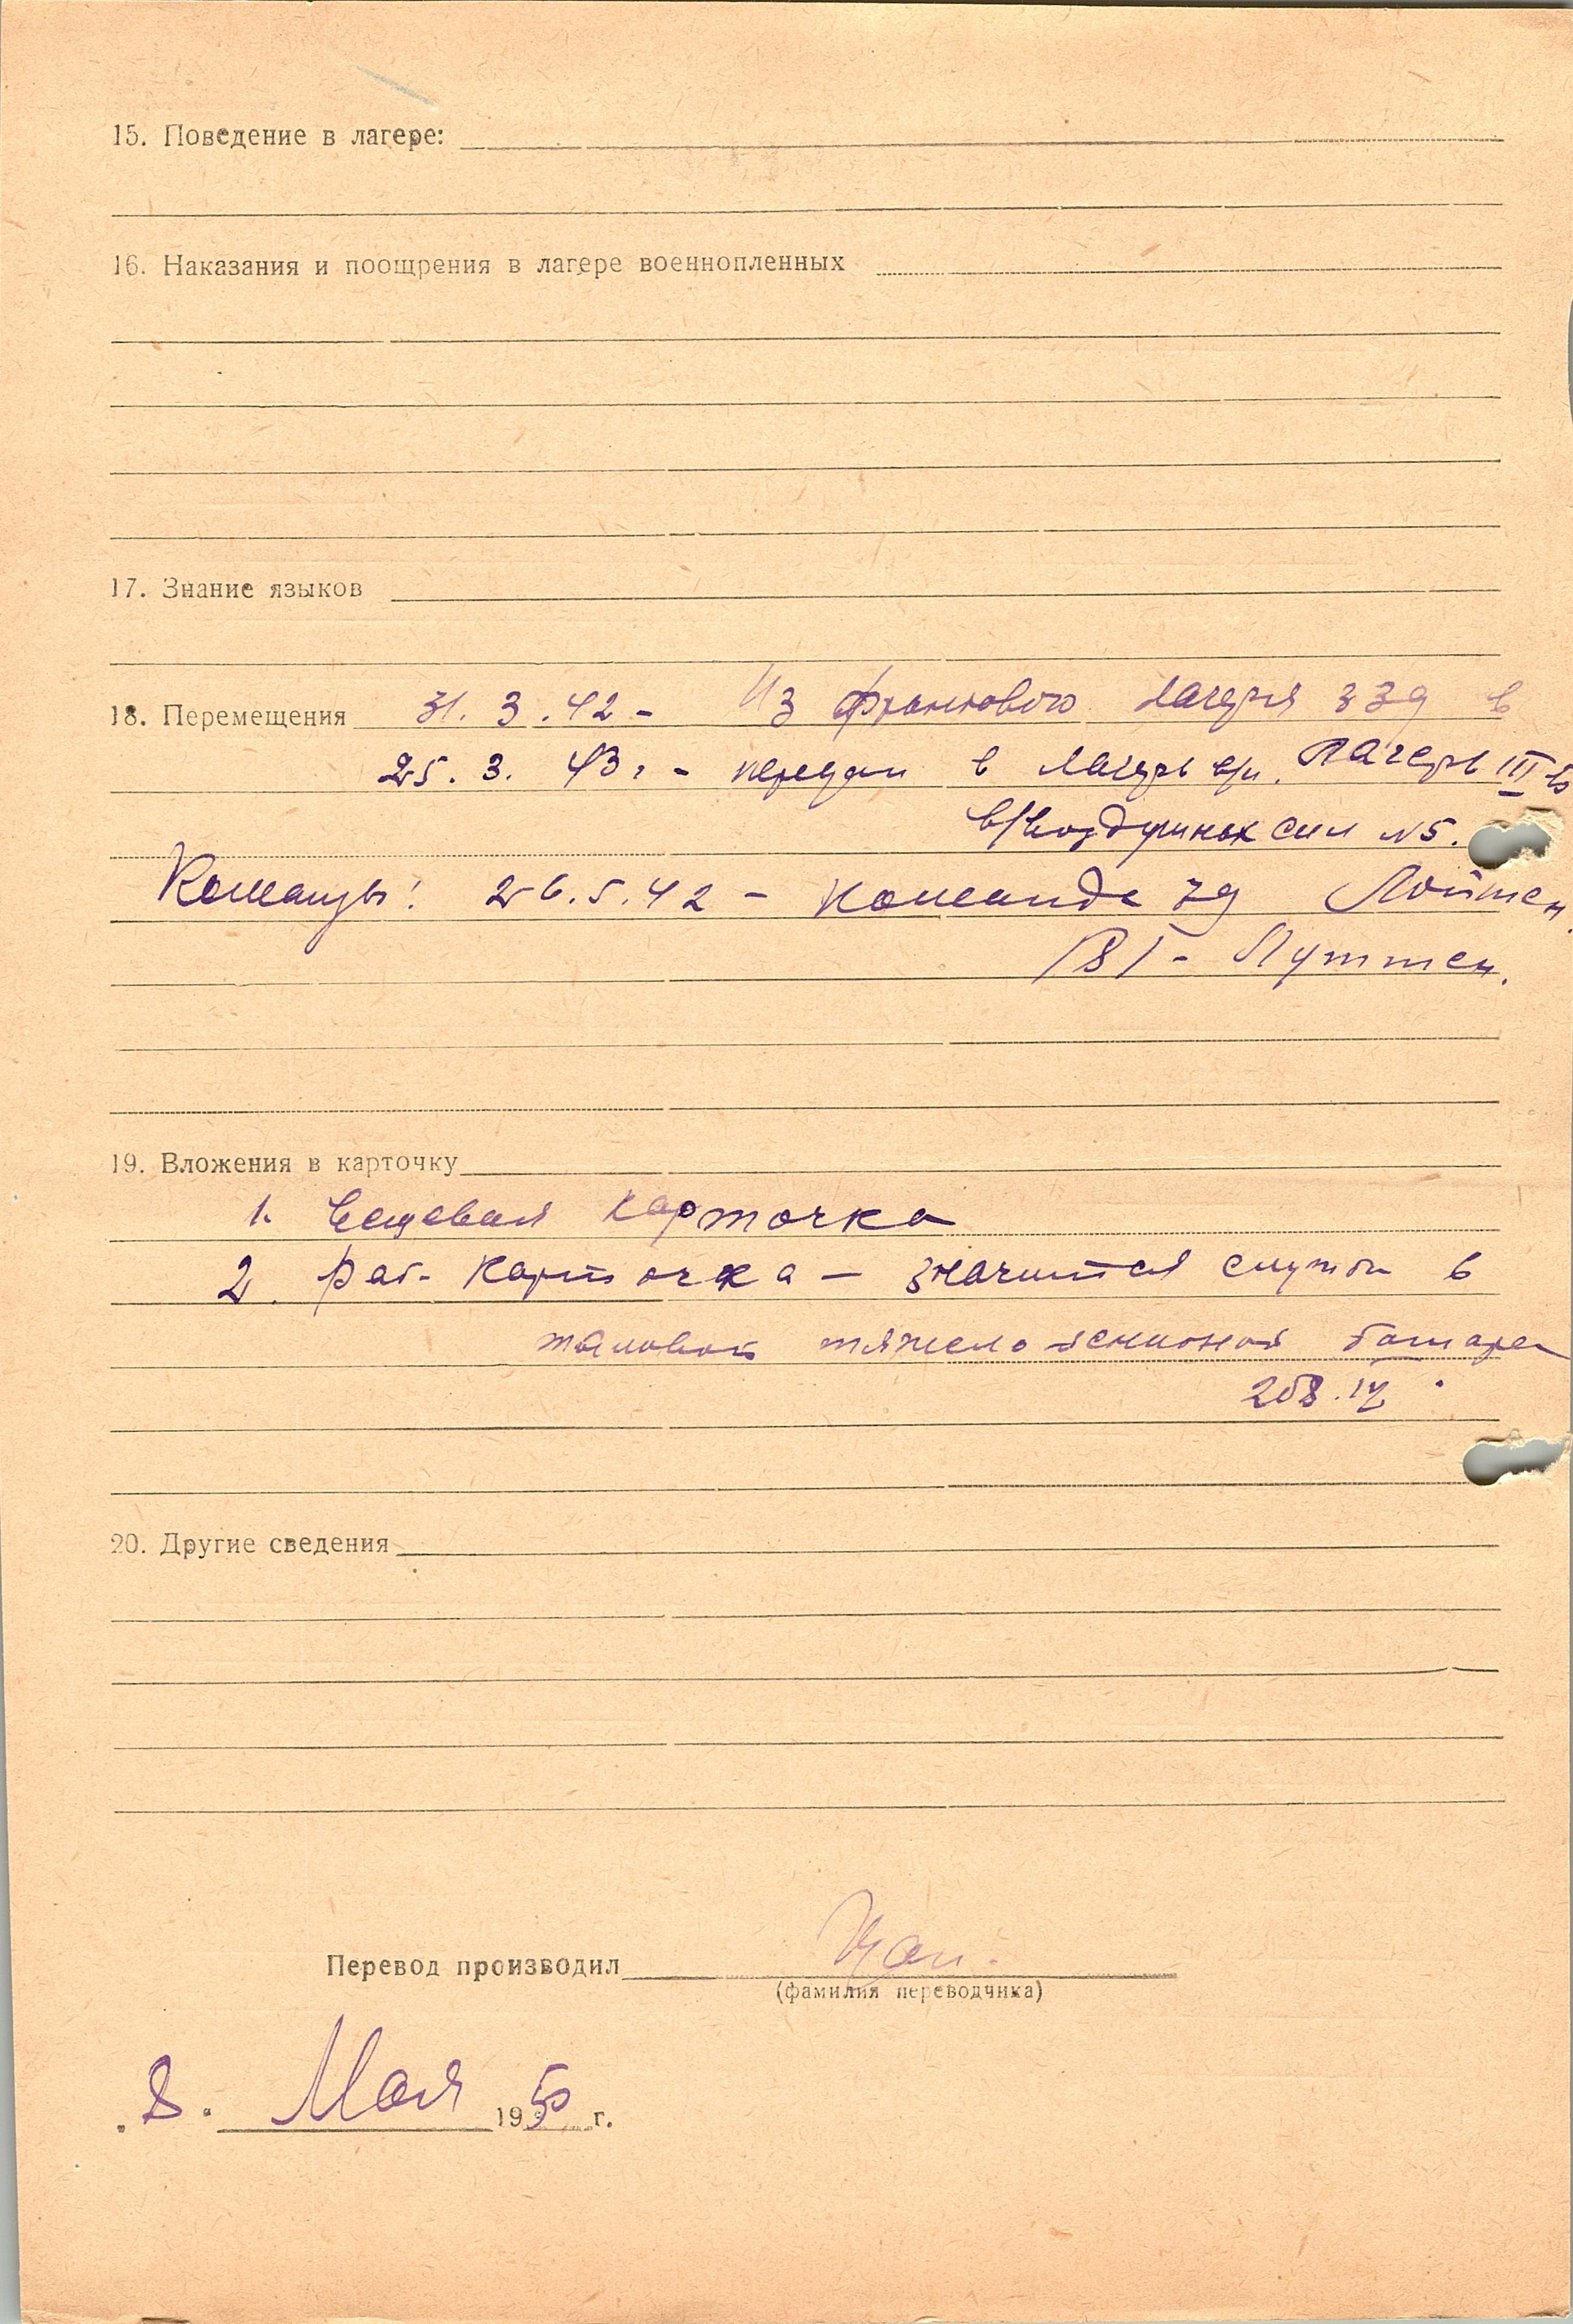 15. Поведение в лагере:
16. Наказания и поощрения в лагере военнопленных
17. Знание языков
18. Перемещения 31. 3. 42 - Из фронтового лагеря 339 в
25. 3. 43 г. - передан в лагерь в/п. Лагерь III в
в/воздушных сил N5.
Команды: 26. 5. 42 - Команда 79 Лойтен
/В/ - Путтен.
19. Вложения в карточку
1. Вещевая карточка
2. Раб. карточка - значится служба в
тяжело зенитной батареи
208. IV.
20. Другие сведения
Перевод производил
(фамилия переводчика)
„8.“ Мая 1950 г.